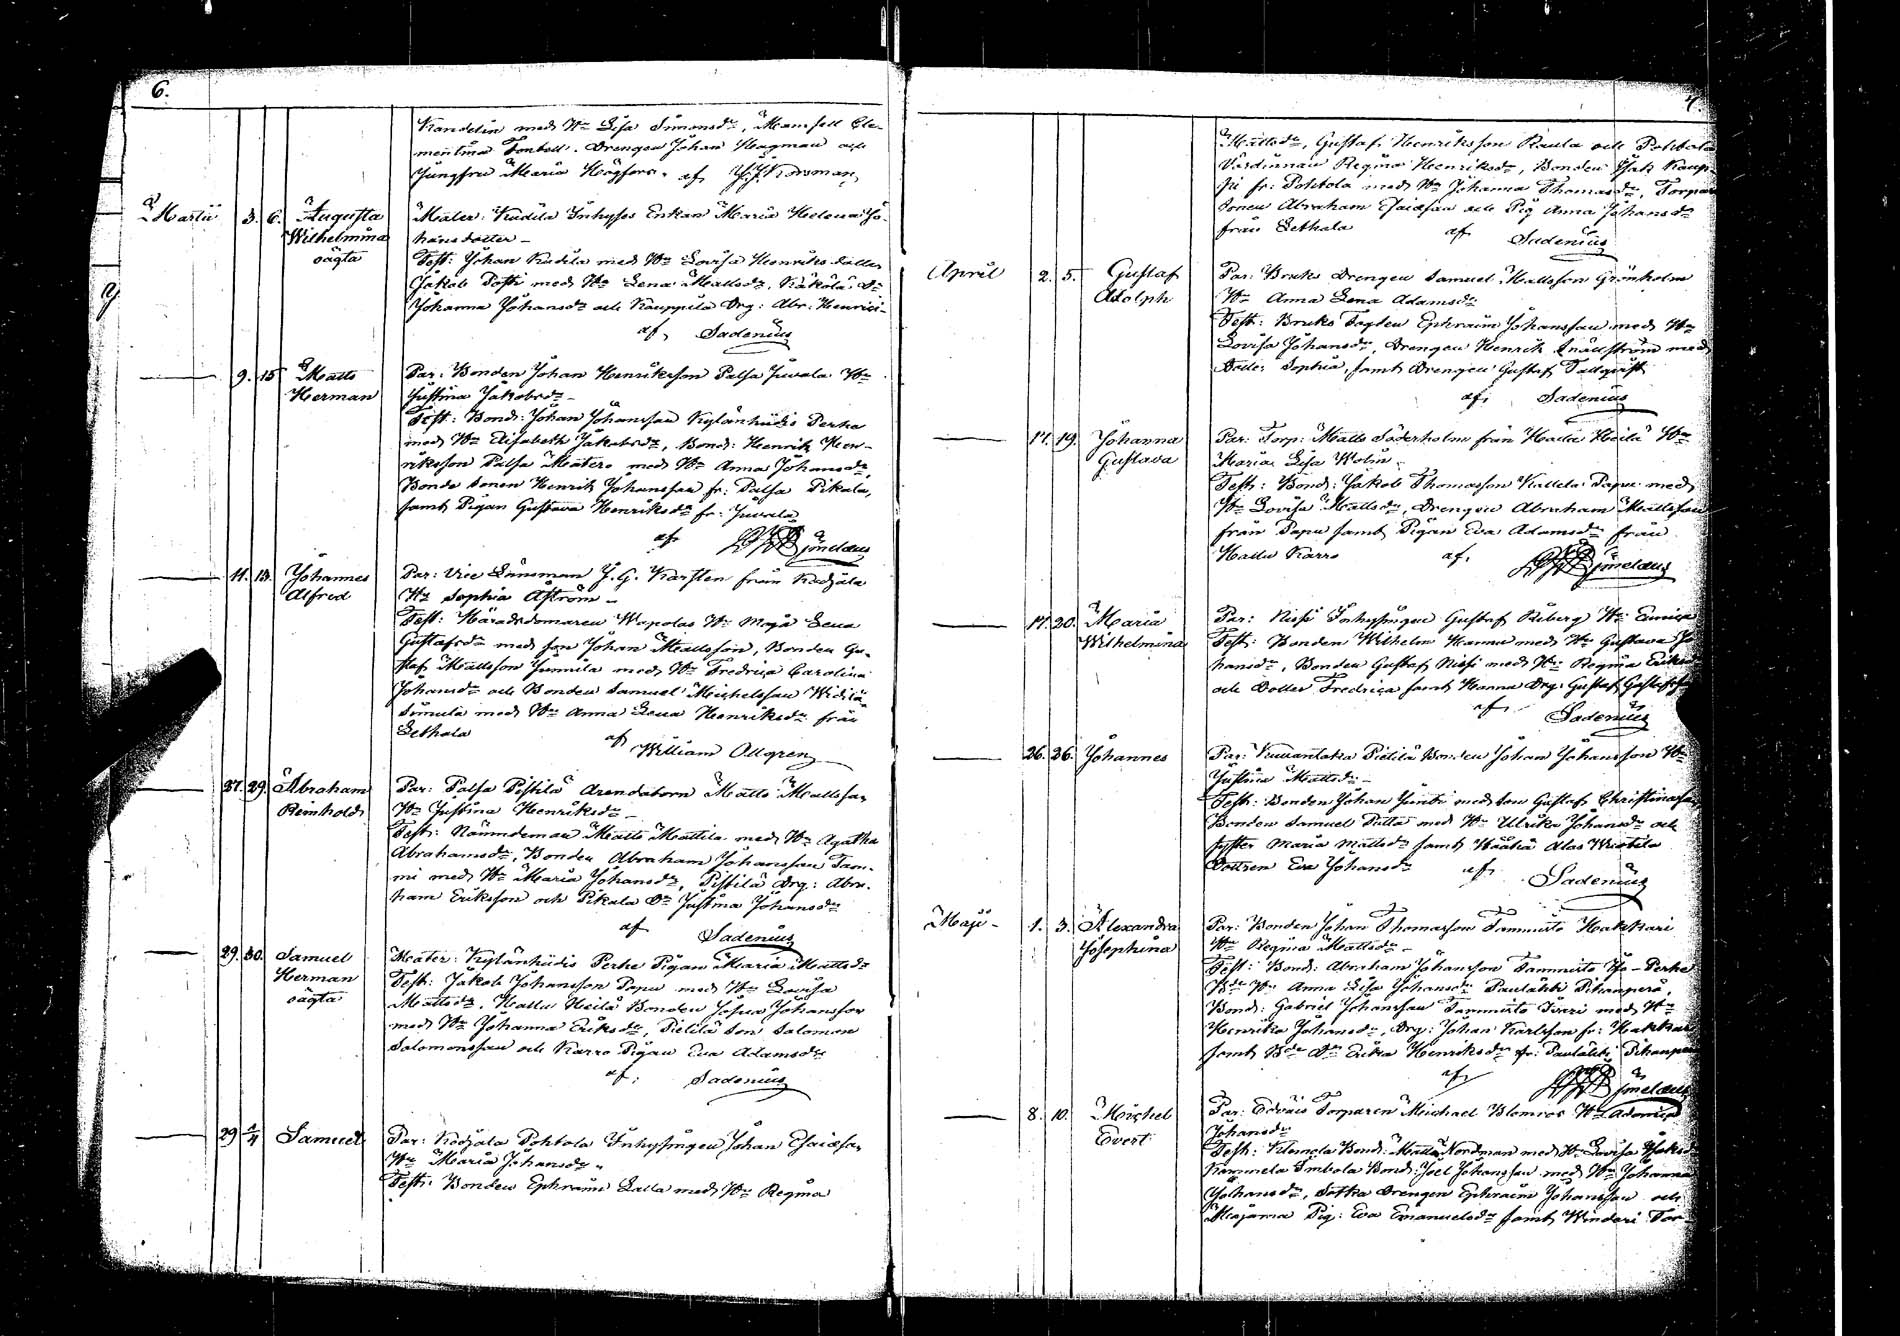 6.
Kandelin med Hu Lisa Simonsdr, Mamsell Cle-
mentina Fontell. Drengen Johan Hagman och
Jungfru Maria Högfors. af J. J. Korsman
Martii 3. 6. Augusta Mater: Kudila Inhyses Enkan Maria Helena Jo-
Wilhelmina hansdotter –
oägta Test: Johan Kudila med Hu Lovisa Henriks dotter
Jakob Potti med Hu Lena Mattsdr, Käkölä Dr
Johanna Johansdr och Kauppila Drg: Abr: Henrici-
af Sadenius
9. 15 Matts Par: Bonden Johan Henriksson Palsa Juvala Hu
Herman Justina Jakobsdr –
Test: Bond: Johan Johansson Kylänhiidis Perha
med Hu Elisabeth Jakobsdr, Bond: Henrik Hen-
riksson Palsa Matero med Hu Anna Johansdr,
Bonde sonen Henrik Johansson fr: Palsa Pikala,
samt Pigan Gustava Henriksdr fr: Juvala
af Limelæus
11. 13. Johannes Par: Vice Länsman J. G. Karsten från Kodjala
Alfred Hu Sophia Åström –
Test: Häradsdomaren Wapolas Hu Maja Lena
Gustafsdr med son Johan Mattsson, Bonden Gu-
staf Mattsson Junnila med Hu Fredrica Carolina
Johansdr och Bonden Samuel Michelsson Widilä
Simula med Hu Anna Lena Henriksdr från
Lethala af
William Ollgren
27. 29. Abraham Par: Palsa Pistilä Arendatorn Matts Mattsson
Reinhold Hu Justina Henriksdr –
Test: Nämndeman Matts Mattila med Hu Agatha
Abrahamsdr, Bonden Abraham Johansson Tam-
mi med Hu Maria Johansdr, Pistilä Drg: Abra-
ham Eriksson och Pikala Dr Justina Johansdr
af Sadenius
29. 30. Samuel Mater: Kylänhiidis Perhe Pigan Maria Mattsdr
Herman Test: Jakob Johansson Papu med Hu Lovisa
oägta Mattsdr, Hallu Heilä Bonden Josua Johansson
med Hu Johanna Eriksdr, Pietilä Son Salomon
Salomonsson och Karro Pigan Eva Adamsdr
af: Sadenius
29 1/4 Samuel Par: Kodjala Pohtola Inhysingen Johan Esaiasson
Hu Maria Johansdr.
Test: Bonden Ephraim Lalla med Hu Regina
7.
Mattsdr, Gustaf Henriksson Raula och Pohtola
Värdinnan Regina Henriksdr, Bonden Isak Kaup-
pi fr: Pohtola med Hu Johanna Thomasdr, Torpar
sonen Abraham Esaiasson och Pig Anna Johansdr
från Lethala af Sadenius
April 2. 5. Gustaf Par: Bruks Drengen Samuel Mattsson Grönholm
Adolph Hu Anna Lena Adamsdr
Test: Bruks Fogten Ephraim Johansson med Hu
Lovisa Johansdr, Drengen Henrik Snällström med
Dotter Sophia, samt Drengen Gustaf Tallqvist
af: Sadenius
17. 19. Johanna Par: Torp: Matts Söderholm från Hallu Heilä Hu
Gustava Maria Lisa Wolin –
Test: Bond: Jakob Thomasson Kallela Papu med
Hu Lovisa Mattsdr, Drengen Abraham Mattsson
från Papu samt Pigan Eva Adamsdr från
Hallu Karro af. Limelæus
17. 20. Maria Par: Nissi Inhysingen Gustaf Riberg Hu Eurica
Wilhelmina Test: Bonden Wilhelm Hannu med Hu Gustava Jo
hansdr, Bonden Gustaf Nissi med Hu Regina Eriksdr
och Dotter Fredrica samt Hannu Drg: Gustaf Gustafss
af Sadenius
26. 26. Johannes Par: Pietilä Bonden Johan Johansson Hu
Justina Mattsdr –
Test: Bonden Johan Junti med son Gustaf Christiansson
Bonden Samuel Putta med Hu Ulrika Johansdr och
syster Maria Mattsdr samt Alas
Dottren Eva Johansdr af Sadenius
Maji – 1. 3. Alexandra Par: Bonden Johan Thomasson Tammisto Hakkari
Josephina Hu Regina Mattsdr –
Test: Bond: Abraham Johansson Tammisto Iso-Perhe
Hu Anna Lisa Johansdr Pauläkti Pihanperä,
Bond: Gabriel Johansson Tammisto med Hu
Henrika Johansdr, Drg: Johan Karlsson fr: Hakkar
samt Bde Dr Erika Henriksdr fr: Pauläkti Pihanper
af Limelæus
8. 10. Michel Par: Edväis Torparen Michael Blomros Hu Adamina
Evert Johansdr
Test: Kilamela Bond: Matts Nordman med Hu Lovisa Isaksdr
Kammela Imbola Bond: Joel Johansson med Hu Johanna
Johansdr, Sotka Drengen Ephraim Johansson och
Majama Pig: Eva Emanuelsdr samt Windari Tor-